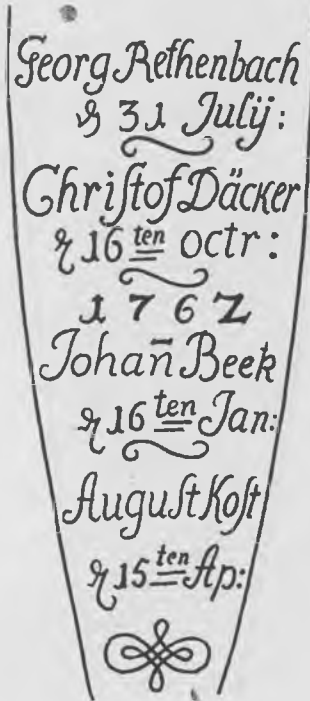 Georg Rethenbach
d 31 Julÿ:
Chriſtof Däcker
d 16 ten octr:
1762
Johan̄ Beek
d 16 ten Jan:
Auguſt Koſt
d 15 ten Ap: